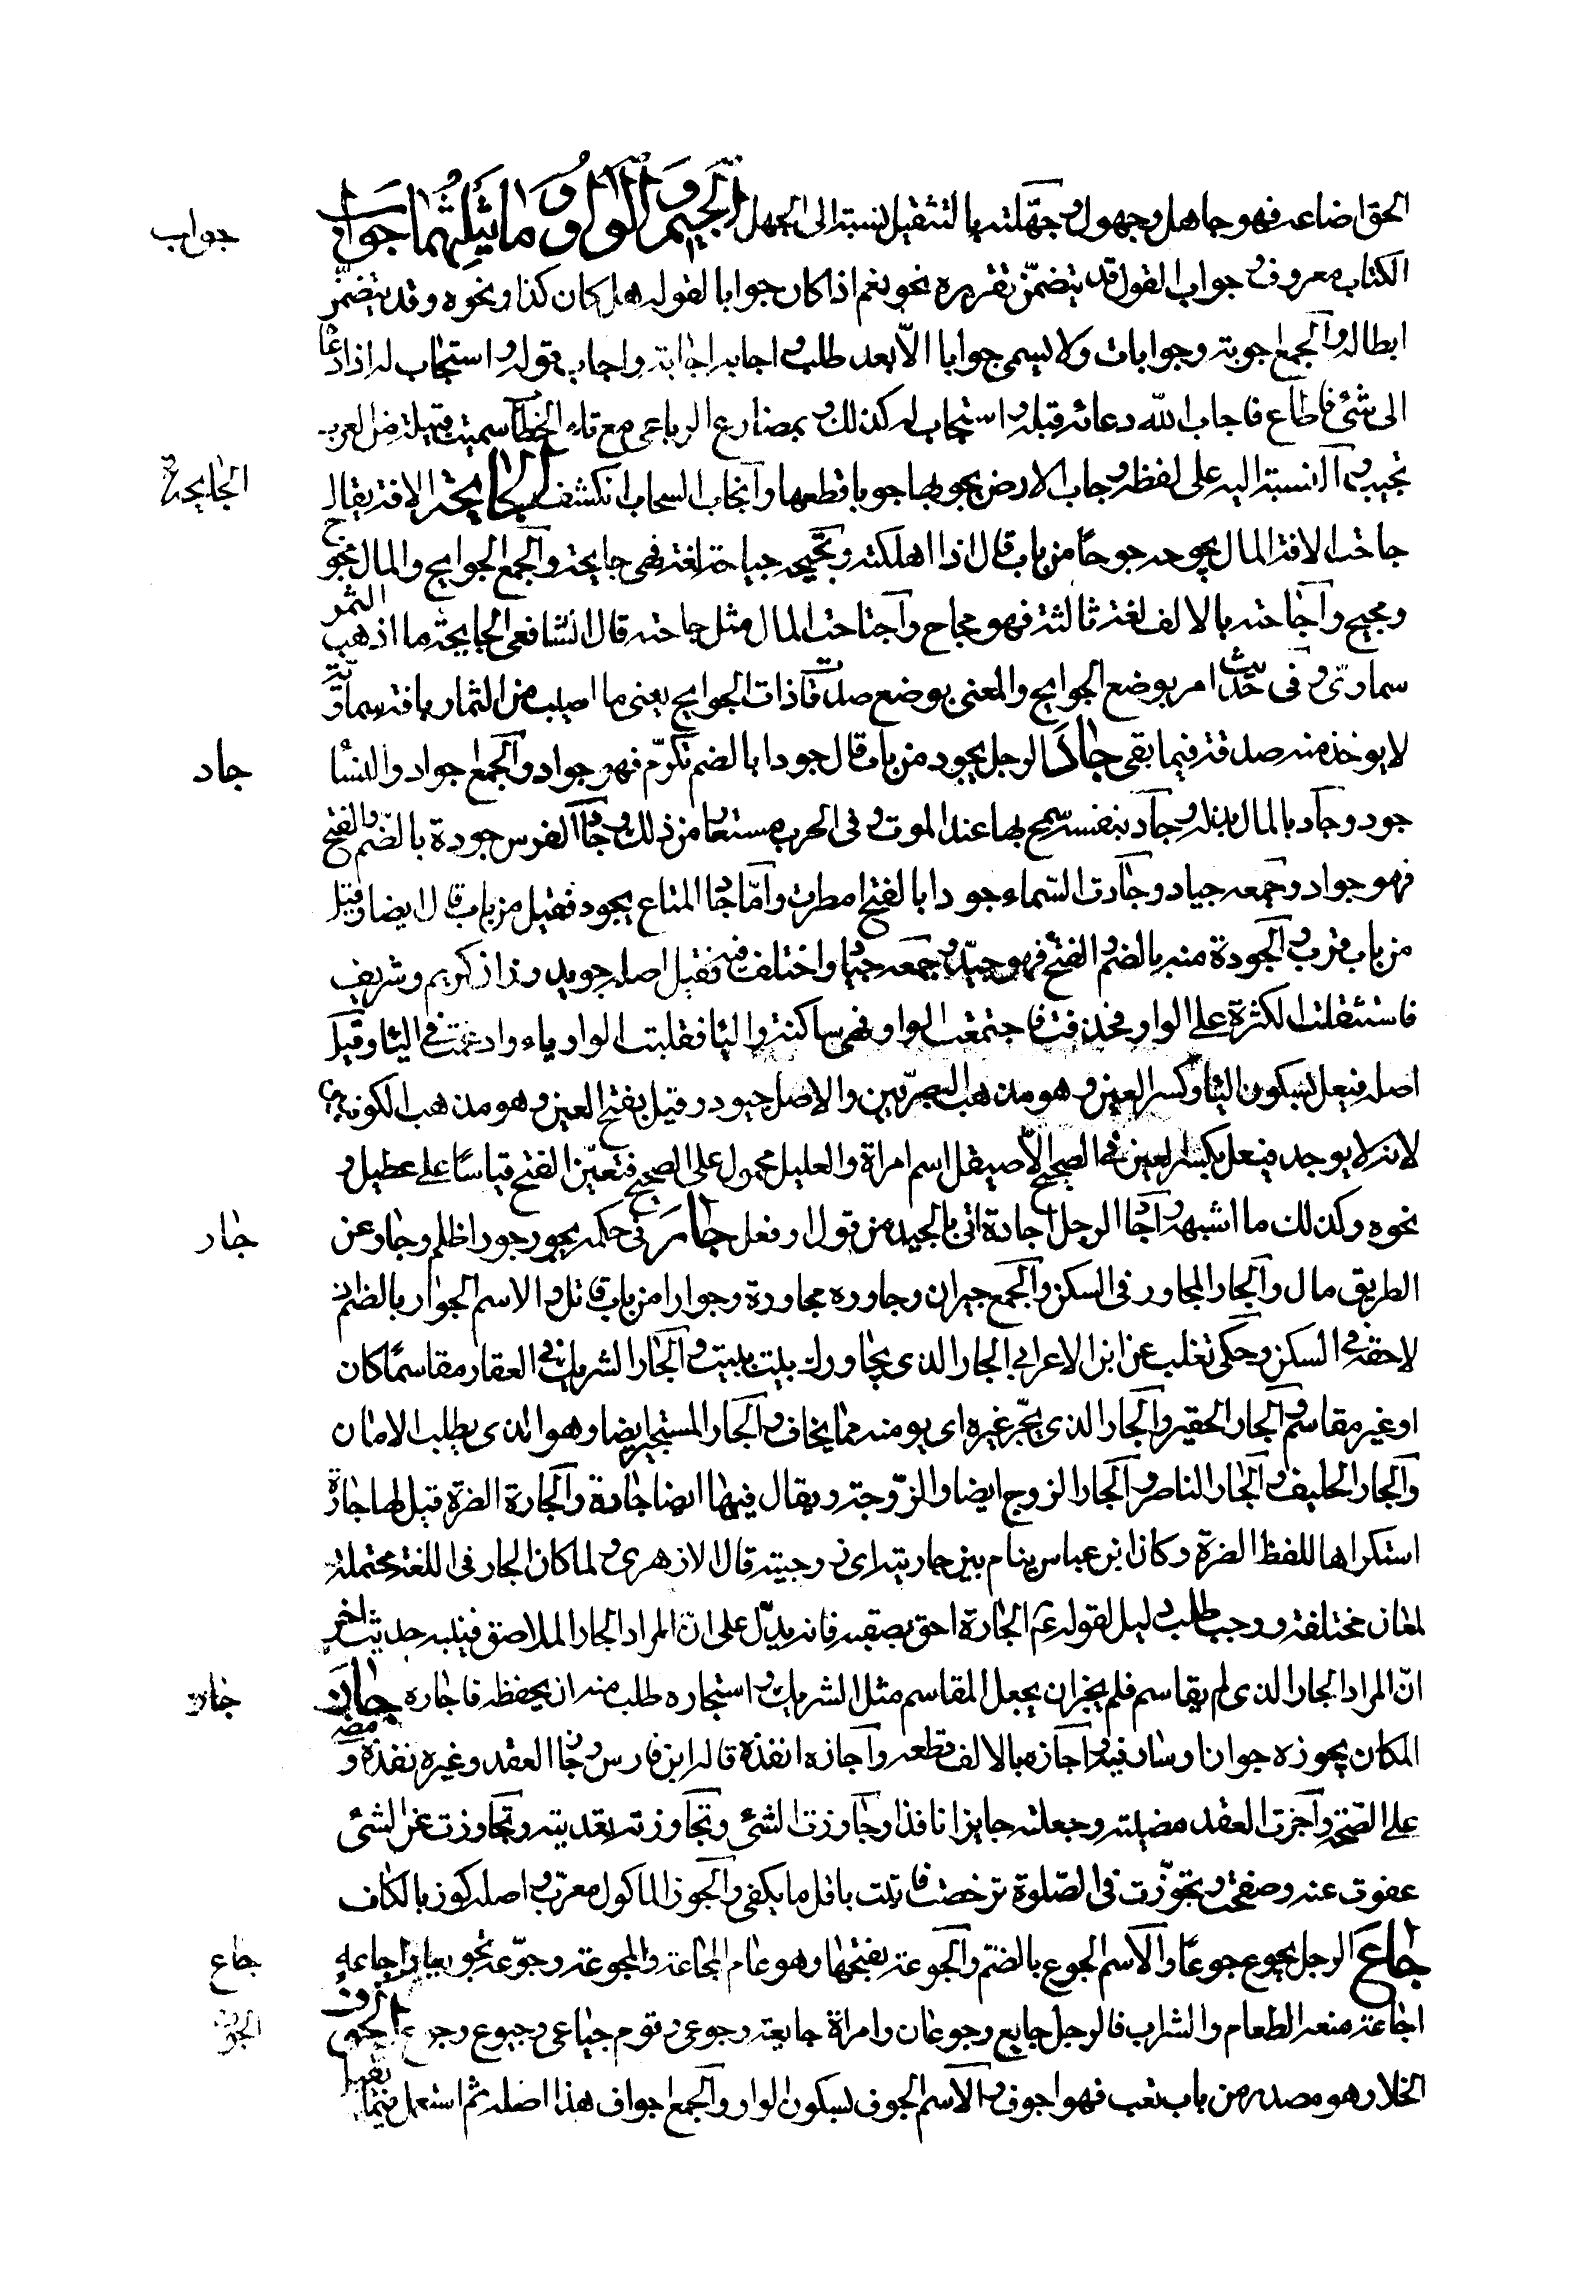 الحق اضاعه فهو جاهل وجهول وجهّلته بالتثقيل نسبته الى الجهل الجيم والواو وما يثلثهما جواب
جواب
الكتاب معروف وجواب القول قد يتضمّن تقريره نحو نعم اذا كان جوابا لقوله هل كان كذا ونحوه وقد يتضمّن
ابطاله والجمع اجوبة وجوابات ولا يسمى جوابا الاّ بعد طلب واجابه اجابة واجاب قوله واستجاب له اذا دعا
الى شئ فاطاع فاجاب الله دعائه قبله واستجاب له كذلك وبمضارع الرباعى مع تاء الخطاب سميت قبيلة من العرب
تجيب والنسبة اليه على لفظه وجاب الارض يجوبها جوبا قطعها وانجاب السحاب انكشف الجايحة الافة يقال
الجايحة
جاحت الافة المال يجوحه جوحًا من باب قال اذا اهلكته وتجيحه جياحة لغة فهى جايحة والجمع الجوايح والمال مجوح
ومجيح واجاحته بالالف لغة ثالثة فهو مجاح واجتاحت المال مثل جاحته قال الشافعى الجايحة ما اذهب الثمر
سماوىّ وفى حديث امر بوضع الجوايح والمعنى بوضع صدقات ذات الجوايح يعنى ما اصيب من الثمار بافة سماويّة
لا يوخذ منه صدقة فيما بقى جاد الرجل يجود من باب قال جودا بالضم تكرّم فهو جواد والجمع اجواد والنسا
جاد
جود وجاد بالمال بذله وجاد بنفسه سمح بها عند الموت وفى الحرب مستعار من ذلك وجاد الفرس جودة بالضّم والفتح
فهو جواد وجمعه جياد وجادت السّماء جودا بالفتح امطرت وامّا جاد المتاع يجود فقيل من باب قال ايضا وقيل
من باب قرب والجودة منه بالضم والفتح فهو جيّد وجمعه جياد واختلف فيه فقيل اصله جويد وزان كريم وشريف
فاستثقلت الكثرة على الواو فحذفت فاجتمعت الواو وهى ساكنة واليا فقلبت الواو ياء وادغمت فى اليا وقيل
اصله فيعل بسكون اليا وكسر العين وهو مذهب البصريّين والاصل جيود وقيل بفتح العين وهو مذهب الكوفيين
لانه لا يوجد فيعل بكسر العين فى الصحيح الاّ صيقل اسم امراة والعليل محمول على الصحيح فتعيّن الفتح قياسًا على عطيل و
نحوه وكذلك ما اشبهه واجاد الرجل اجادة اتى بالجيد من قول او فعل جار فى حكمه يجور جورا ظلم وجار عن
جار
الطريق مال والجار المجاور فى السكن والجمع جيران وجاوره مجاورة وجوارا من باب قاتل والاسم الجوار بالضم اذا
لاحقه فى السكن وحكى ثعلب عن ابن الاعرابى الجار الذى يجاورك بيت بيت والجار الشريك فى العقار مقاسمًا كان
او غير مقاسم والجار الحقير والجار الذى يجير غيره اى يومنه ممّا يخاف والجار المستجير ايضا وهو الذى يطلب الامان
والجار الحليف والجار الناصر والجار الزوج ايضا والزّوجة ويقال فيها ايضا جارة والجارة الضرة قيل لها جارة
استكراها للفظ الضرة وكان ابن عباس ينام بين جاريتيه اى زوجيته قال الازهرى ولما كان الجار فى اللغة محتملة
لمعان مختلفة ووجب طلب دليل لقوله عم الجارة احق بصقبه فانه يدلّ على انّ المراد الجار الملاصق فينبه حديث اخر
انّ المراد الجار الذى لم يقاسم فلم يجز ان يجعل المقاسم مثل الشريك واستجاره طلب منه ان يحفظه فاجاره جاز
جاز
المكان يجوزه جوازا وسار فيه واجازه بالالف قطعه واجازه انفذه قاله ابن فارس وجاز العقد وغيره نفذه ومضى
على الصّحة واجزت العقد مضيته وجعلته جايزا نافذا وجاوزت الشئ وتجاوزته بعديته وتجاوزت عن الشئ
عفوت عنه وصفحت وتجوّزت فى الصّلوة ترخصت فاتيت باقل ما يكفى والجوز الماكول معرّب واصله كوز بالكاف
جاع الرجل يجوع جوعًا والاسم الجوع بالضّم والجوعة بفتحها وهو عام المجاعة والمجوعة وجوّعه تجويعا واجاعه
جاع
اجاعة منعه الطعام والشراب فالرجل جايع وجوعان وامراة جايعة وجوعى وقوم جياعى وجيوع وجوع الجوف
الجوف
الخلا وهو مصدر من باب تعب فهو اجوف والاسم الجوف بسكون الواو والجمع اجواف هذا اصله ثم استعمل فيما يقبل